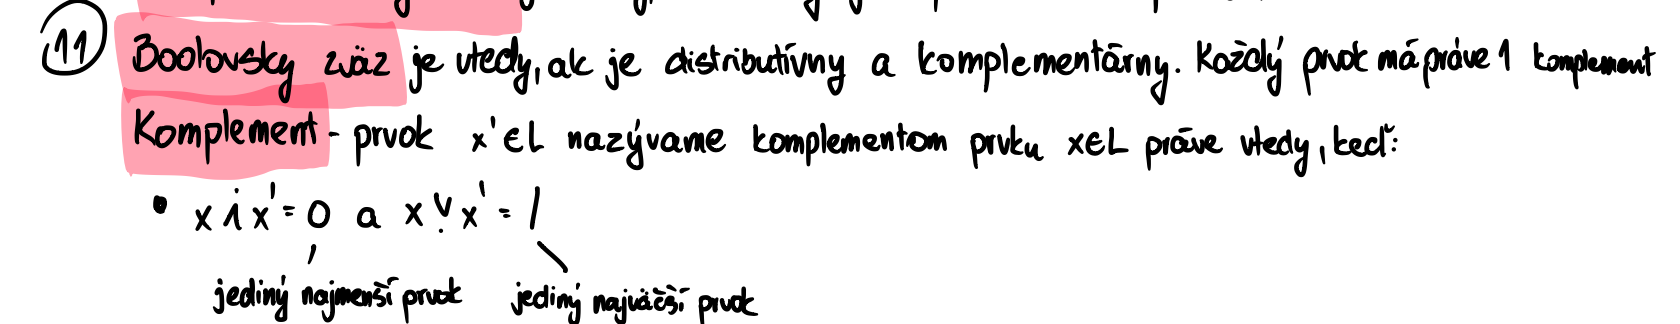 11 Boolovsky zväz je vtedy, ak je distributívny a komplementárny. Každý prvok má práve 1 komplement
Komplement - prvok x' ∈ L nazývame komplementom prvku x ∈ L práve vtedy, keď:
• x ⟑ x' = 0 a x ⩒ x' = 1
jediný najmenší prvok jediný najväčší prvok